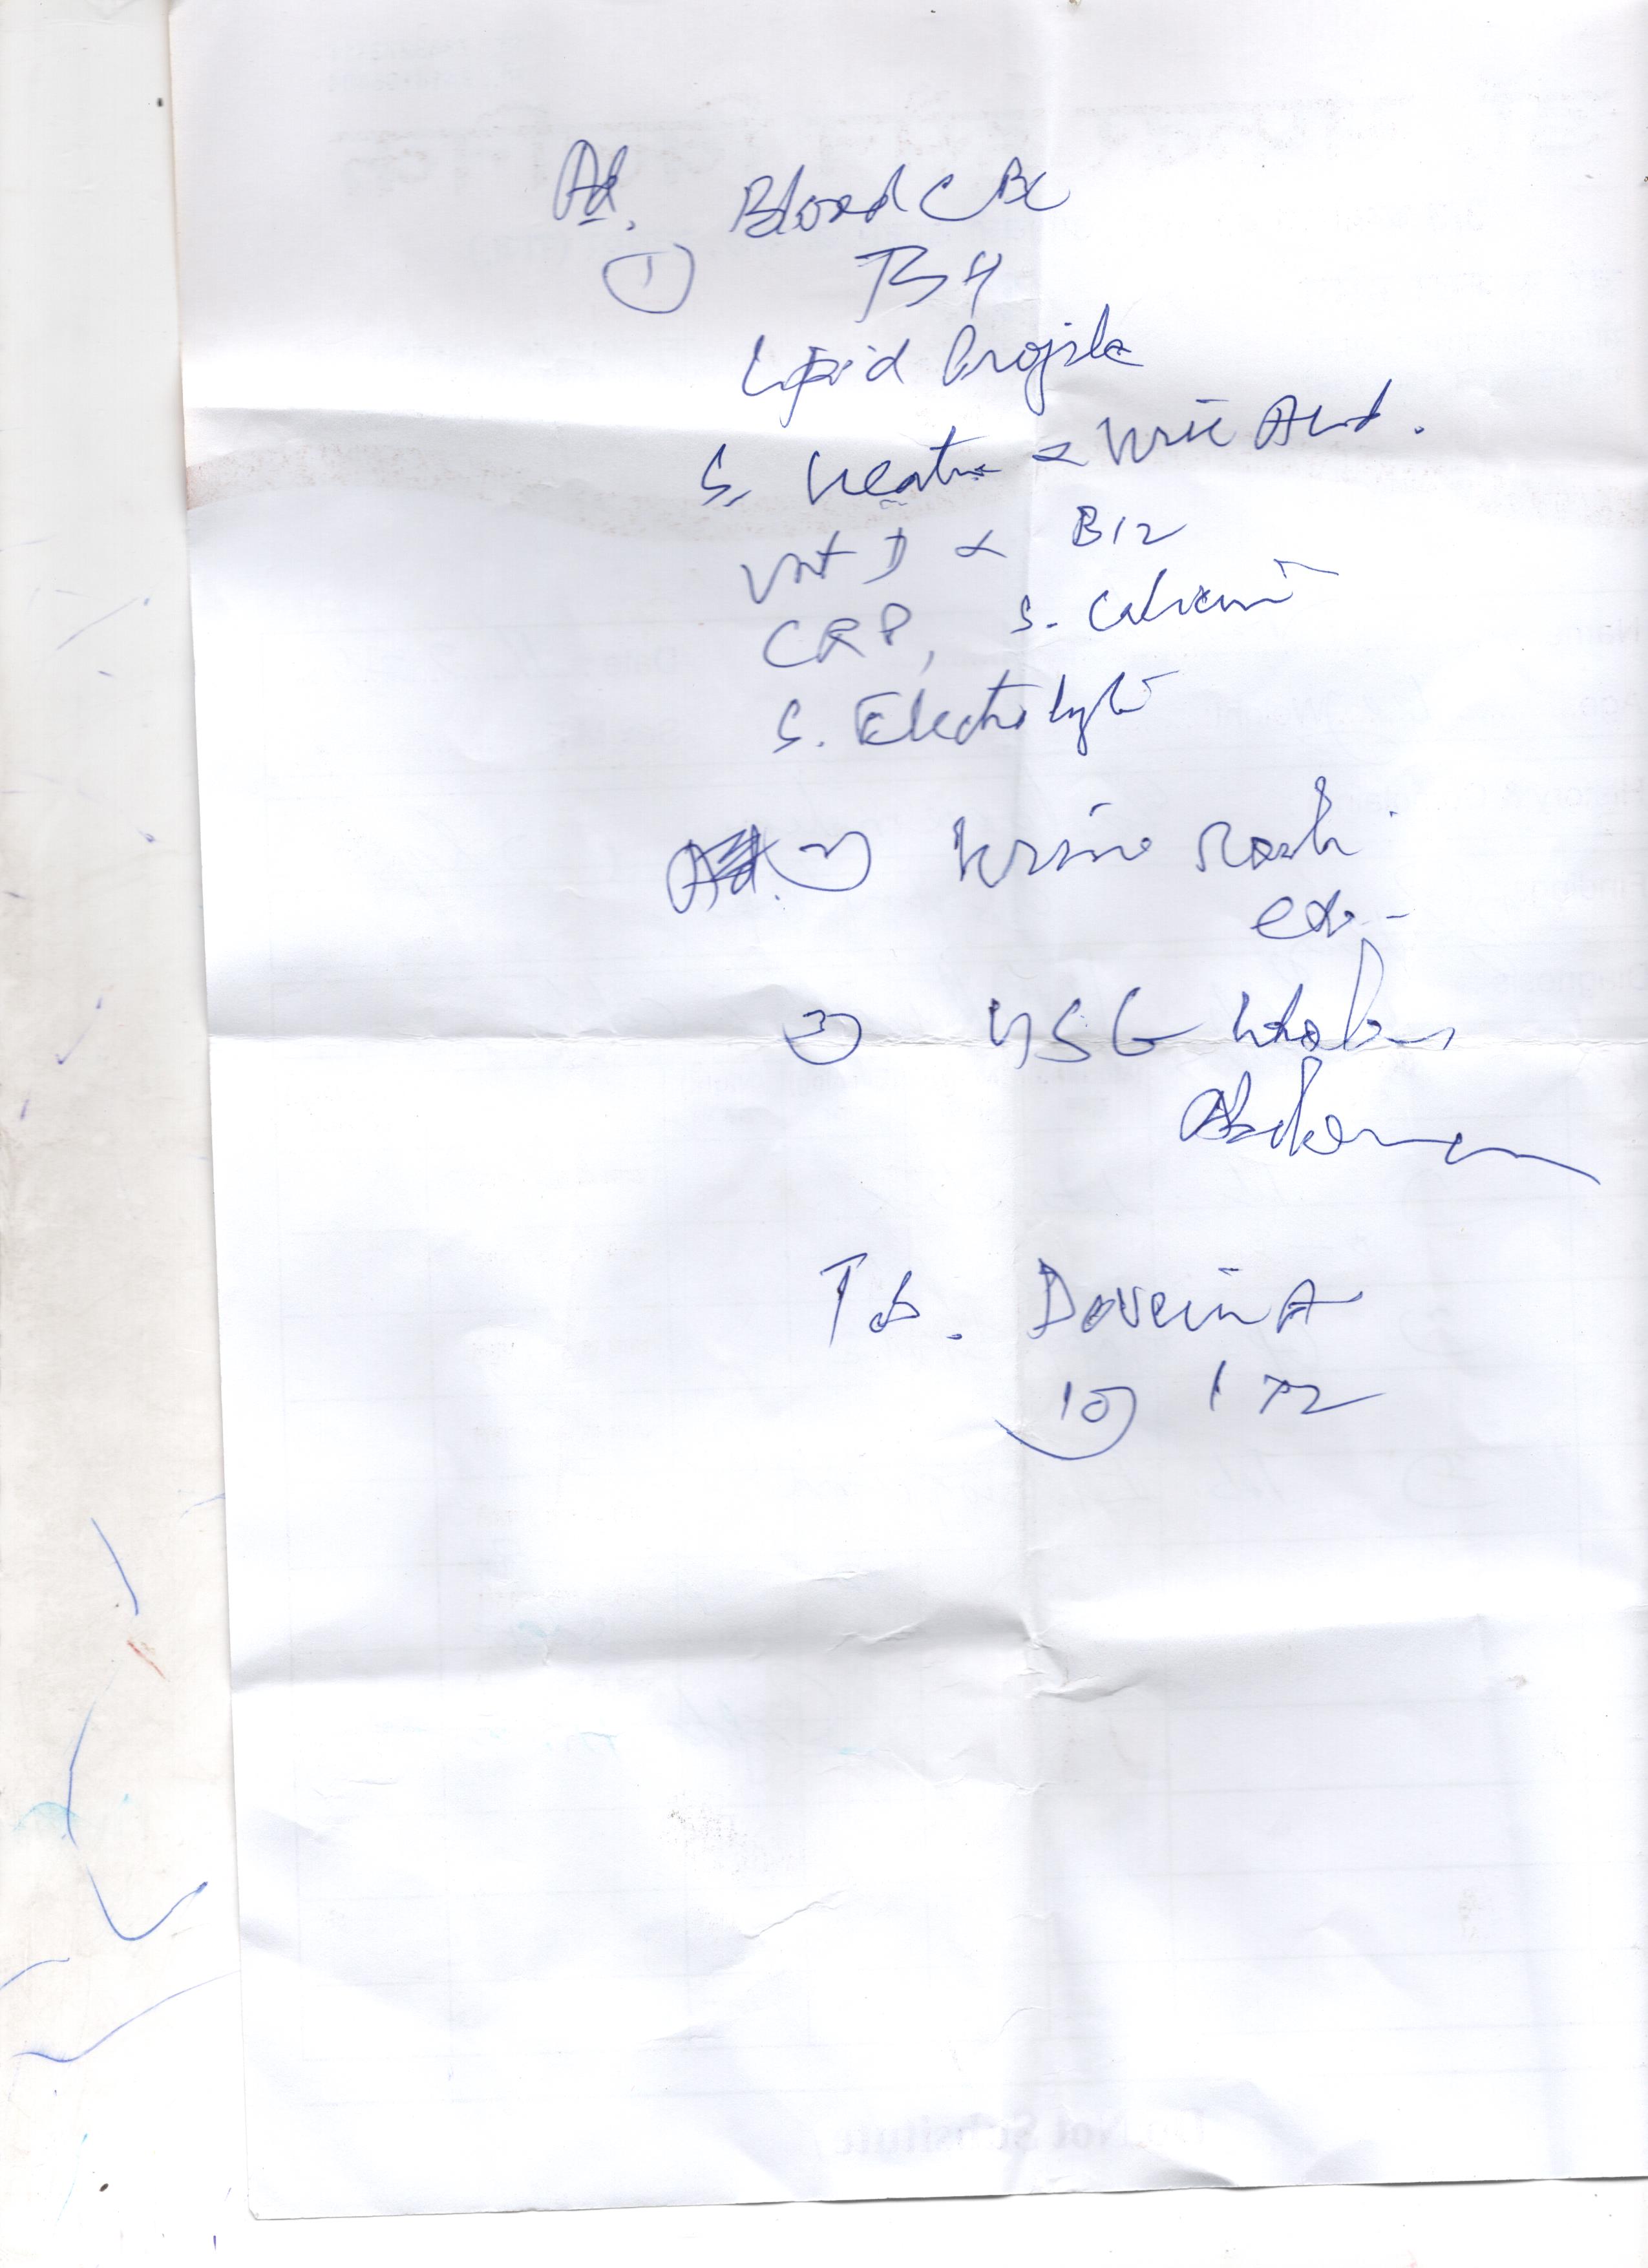 Ad. Blood CBC
① TSH
Lipid Profile
S. Creatine & Uric Acid.
Vit D & B12
CRP, S. Calcium
S. Electrolyte
2) Urine Routi
ex-
3) USG Whole
Abdomen
Tab.
10) 1 x 2